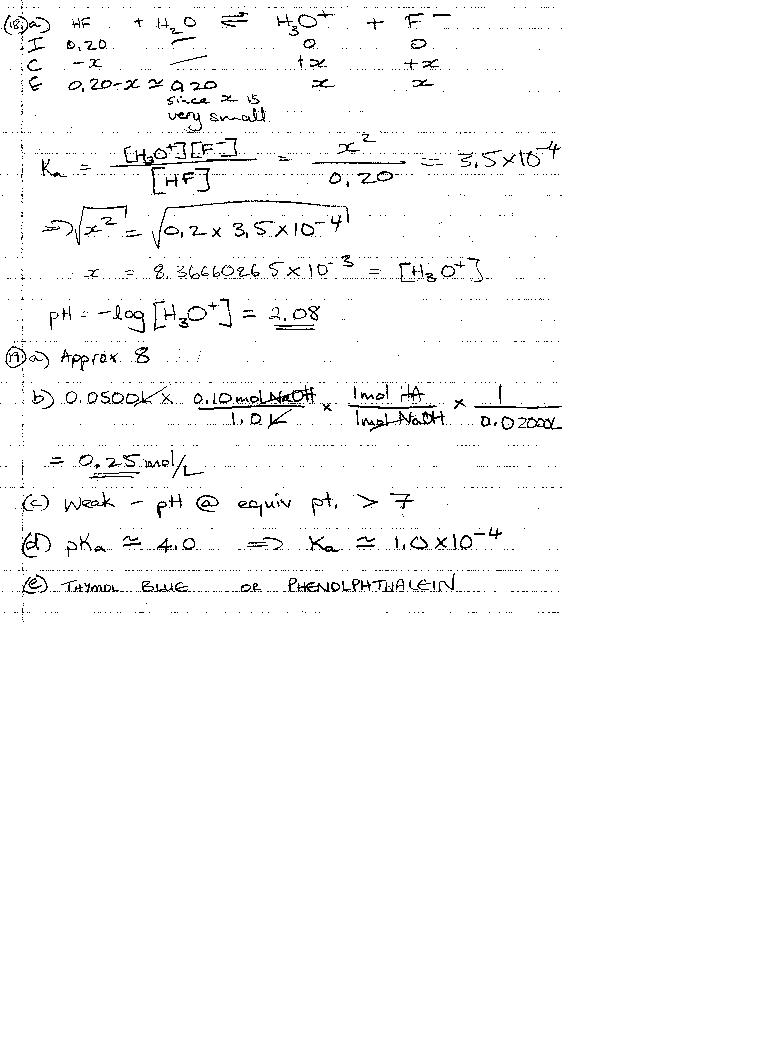 (18)a) HF + H₂O ⇌ H₃O⁺ + F⁻
I 0,20 — 0 0
C -x — +x +x
E 0,20-x ≃ 0,20 x x
since x is
very small
Kₐ = [H₃O⁺][F⁻] / [HF] = x² / 0,20 = 3,5×10⁻⁴
⇒ √x² = √0,2 × 3,5×10⁻⁴
x = 8.36660265×10⁻³ = [H₃O⁺]
pH = -log [H₃O⁺] = 2.08
(19)a) Approx 8
b) 0.0500L × 0.10 mol NaOH / 1.0 L × 1 mol HA / 1 mol NaOH × 1 / 0.0200L
= 0.25 mol/L
(c) Weak - pH @ equiv pt. > 7
(d) pKₐ ≃ 4.0 ⇒ Kₐ ≃ 1.0×10⁻⁴
(e) THYMOL BLUE OR PHENOLPHTHALEIN